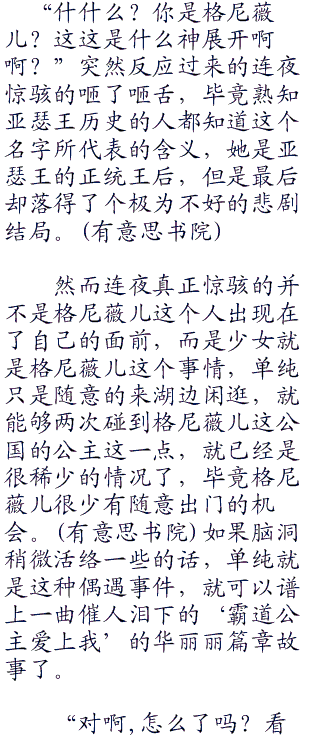 “什什么？你是格尼薇
儿？这这是什么神展开啊
啊？”突然反应过来的连夜
惊骇的咂了咂舌，毕竟熟知
亚瑟王历史的人都知道这个
名字所代表的含义，她是亚
瑟王的正统王后，但是最后
却落得了个极为不好的悲剧
结局。(有意思书院)
然而连夜真正惊骇的并
不是格尼薇儿这个人出现在
了自己的面前，而是少女就
是格尼薇儿这个事情，单纯
只是随意的来湖边闲逛，就
能够两次碰到格尼薇儿这公
国的公主这一点，就已经是
很稀少的情况了，毕竟格尼
薇儿很少有随意出门的机
会。(有意思书院)如果脑洞
稍微活络一些的话，单纯就
是这种偶遇事件，就可以谱
上一曲催人泪下的‘霸道公
主爱上我’的华丽丽篇章故
事了。
“对啊,怎么了吗？看